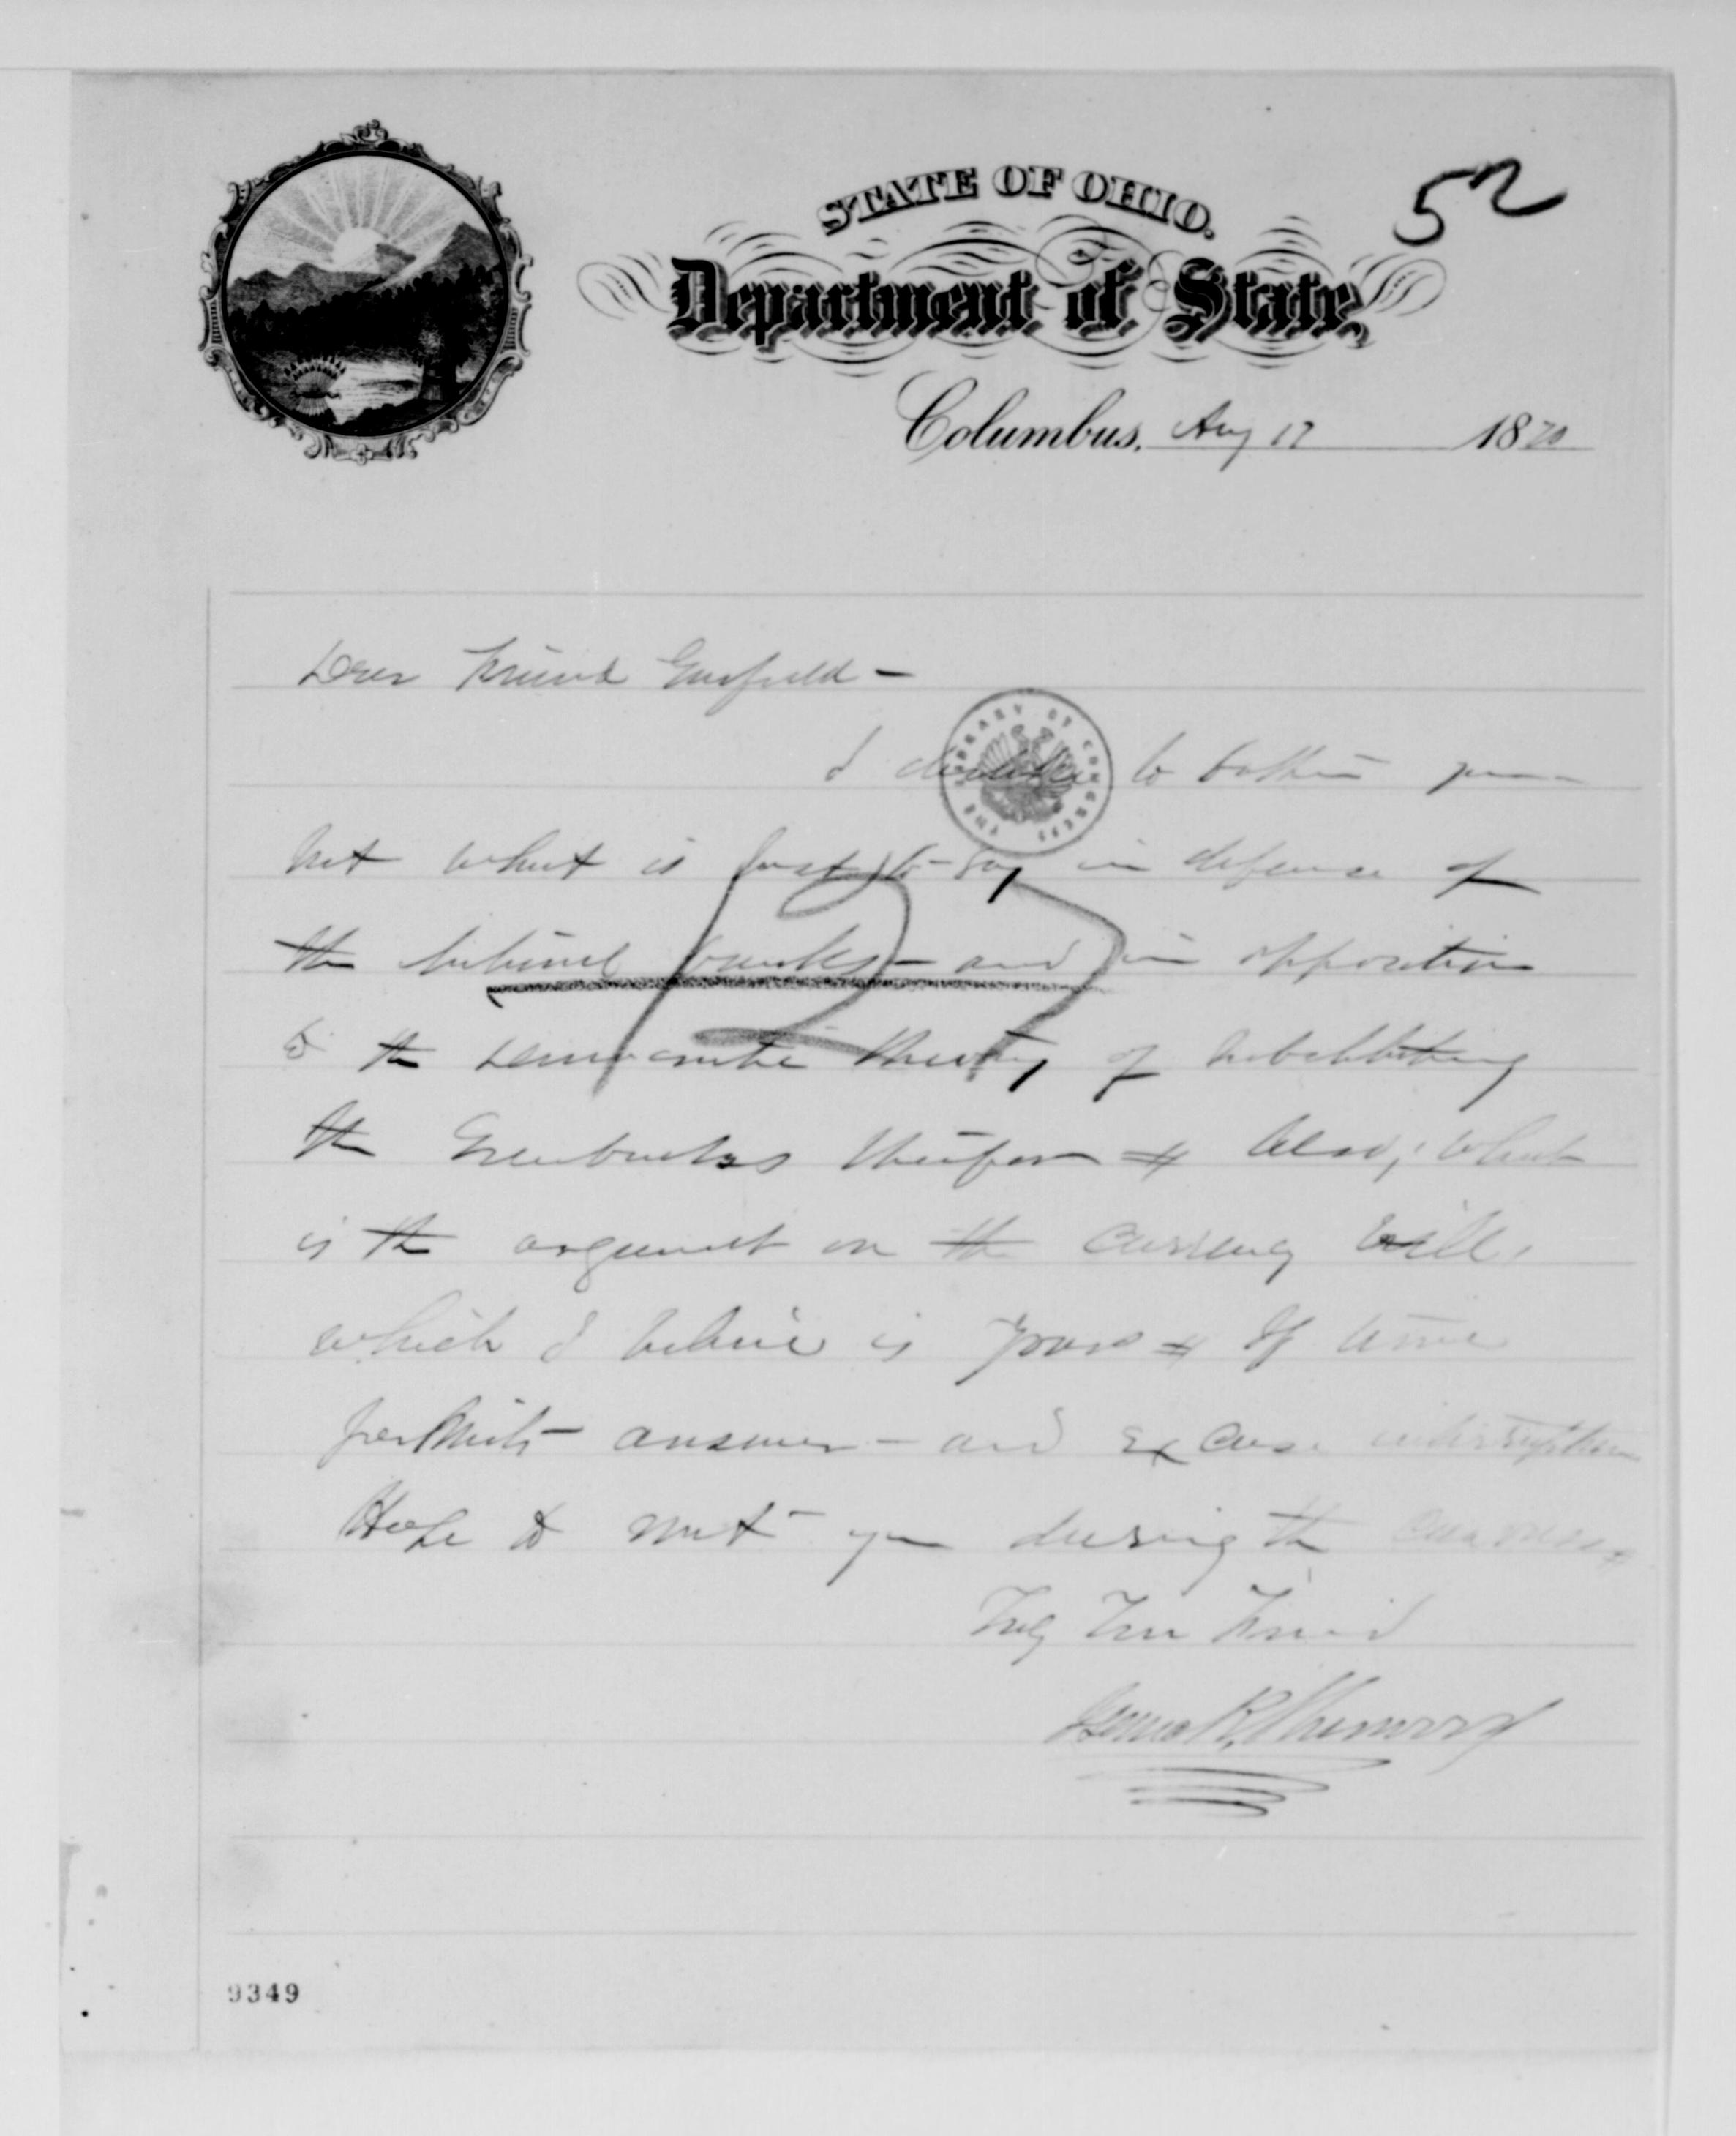 52
STATE OF OHIO.
Department of State,
Columbus, Aug 17 1870
Dear Friend Garfield —
I dislike to bother you
but what is best to say in defense of
the national banks — and in opposition
to the Democratic theory of substituting
the Greenbacks therefor = Also, what
is the argument on the currency bill,
which I believe is yours = If time
permits answer — and excuse interruption
Hope to meet you during the canvass =
Truly Your Friend
Isaac R. Sherwood
127
THE LIBRARY OF CONGRESS
9349